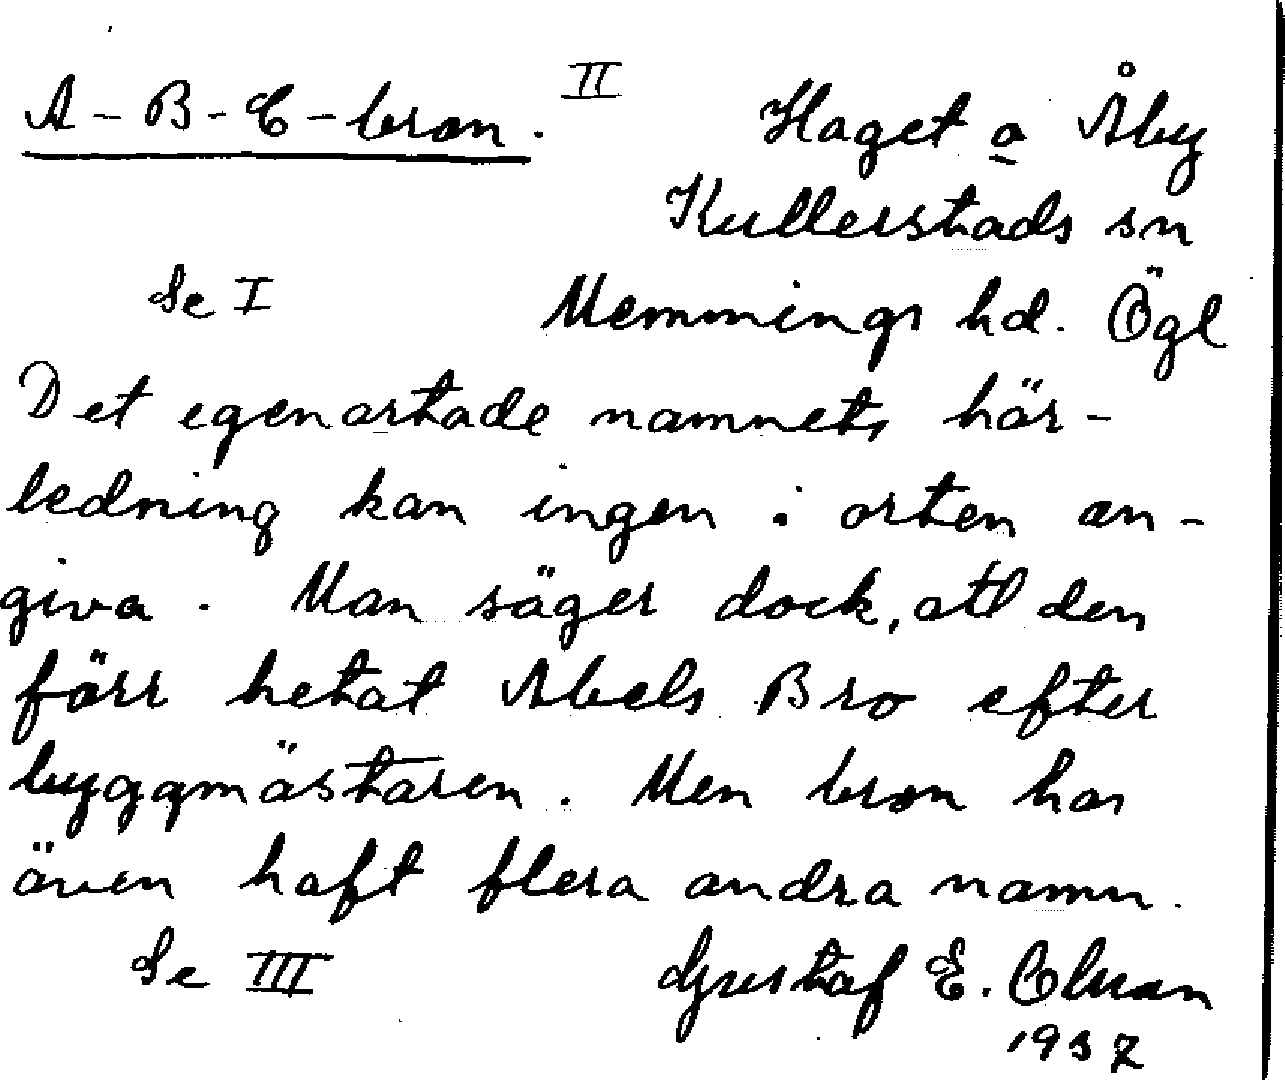 A-B-C-bron. II Haget o Åby
Kullerstads sn
Se I Memmings hd. Ögl
Det egenartade namnets här-
ledning kan ingen i orten an-
giva. Man säger dock, att den
förr hetat Abels Bro efter
byggmästaren. Men bron har
även haft flera andra namn.
Se III Gustaf E.
1937